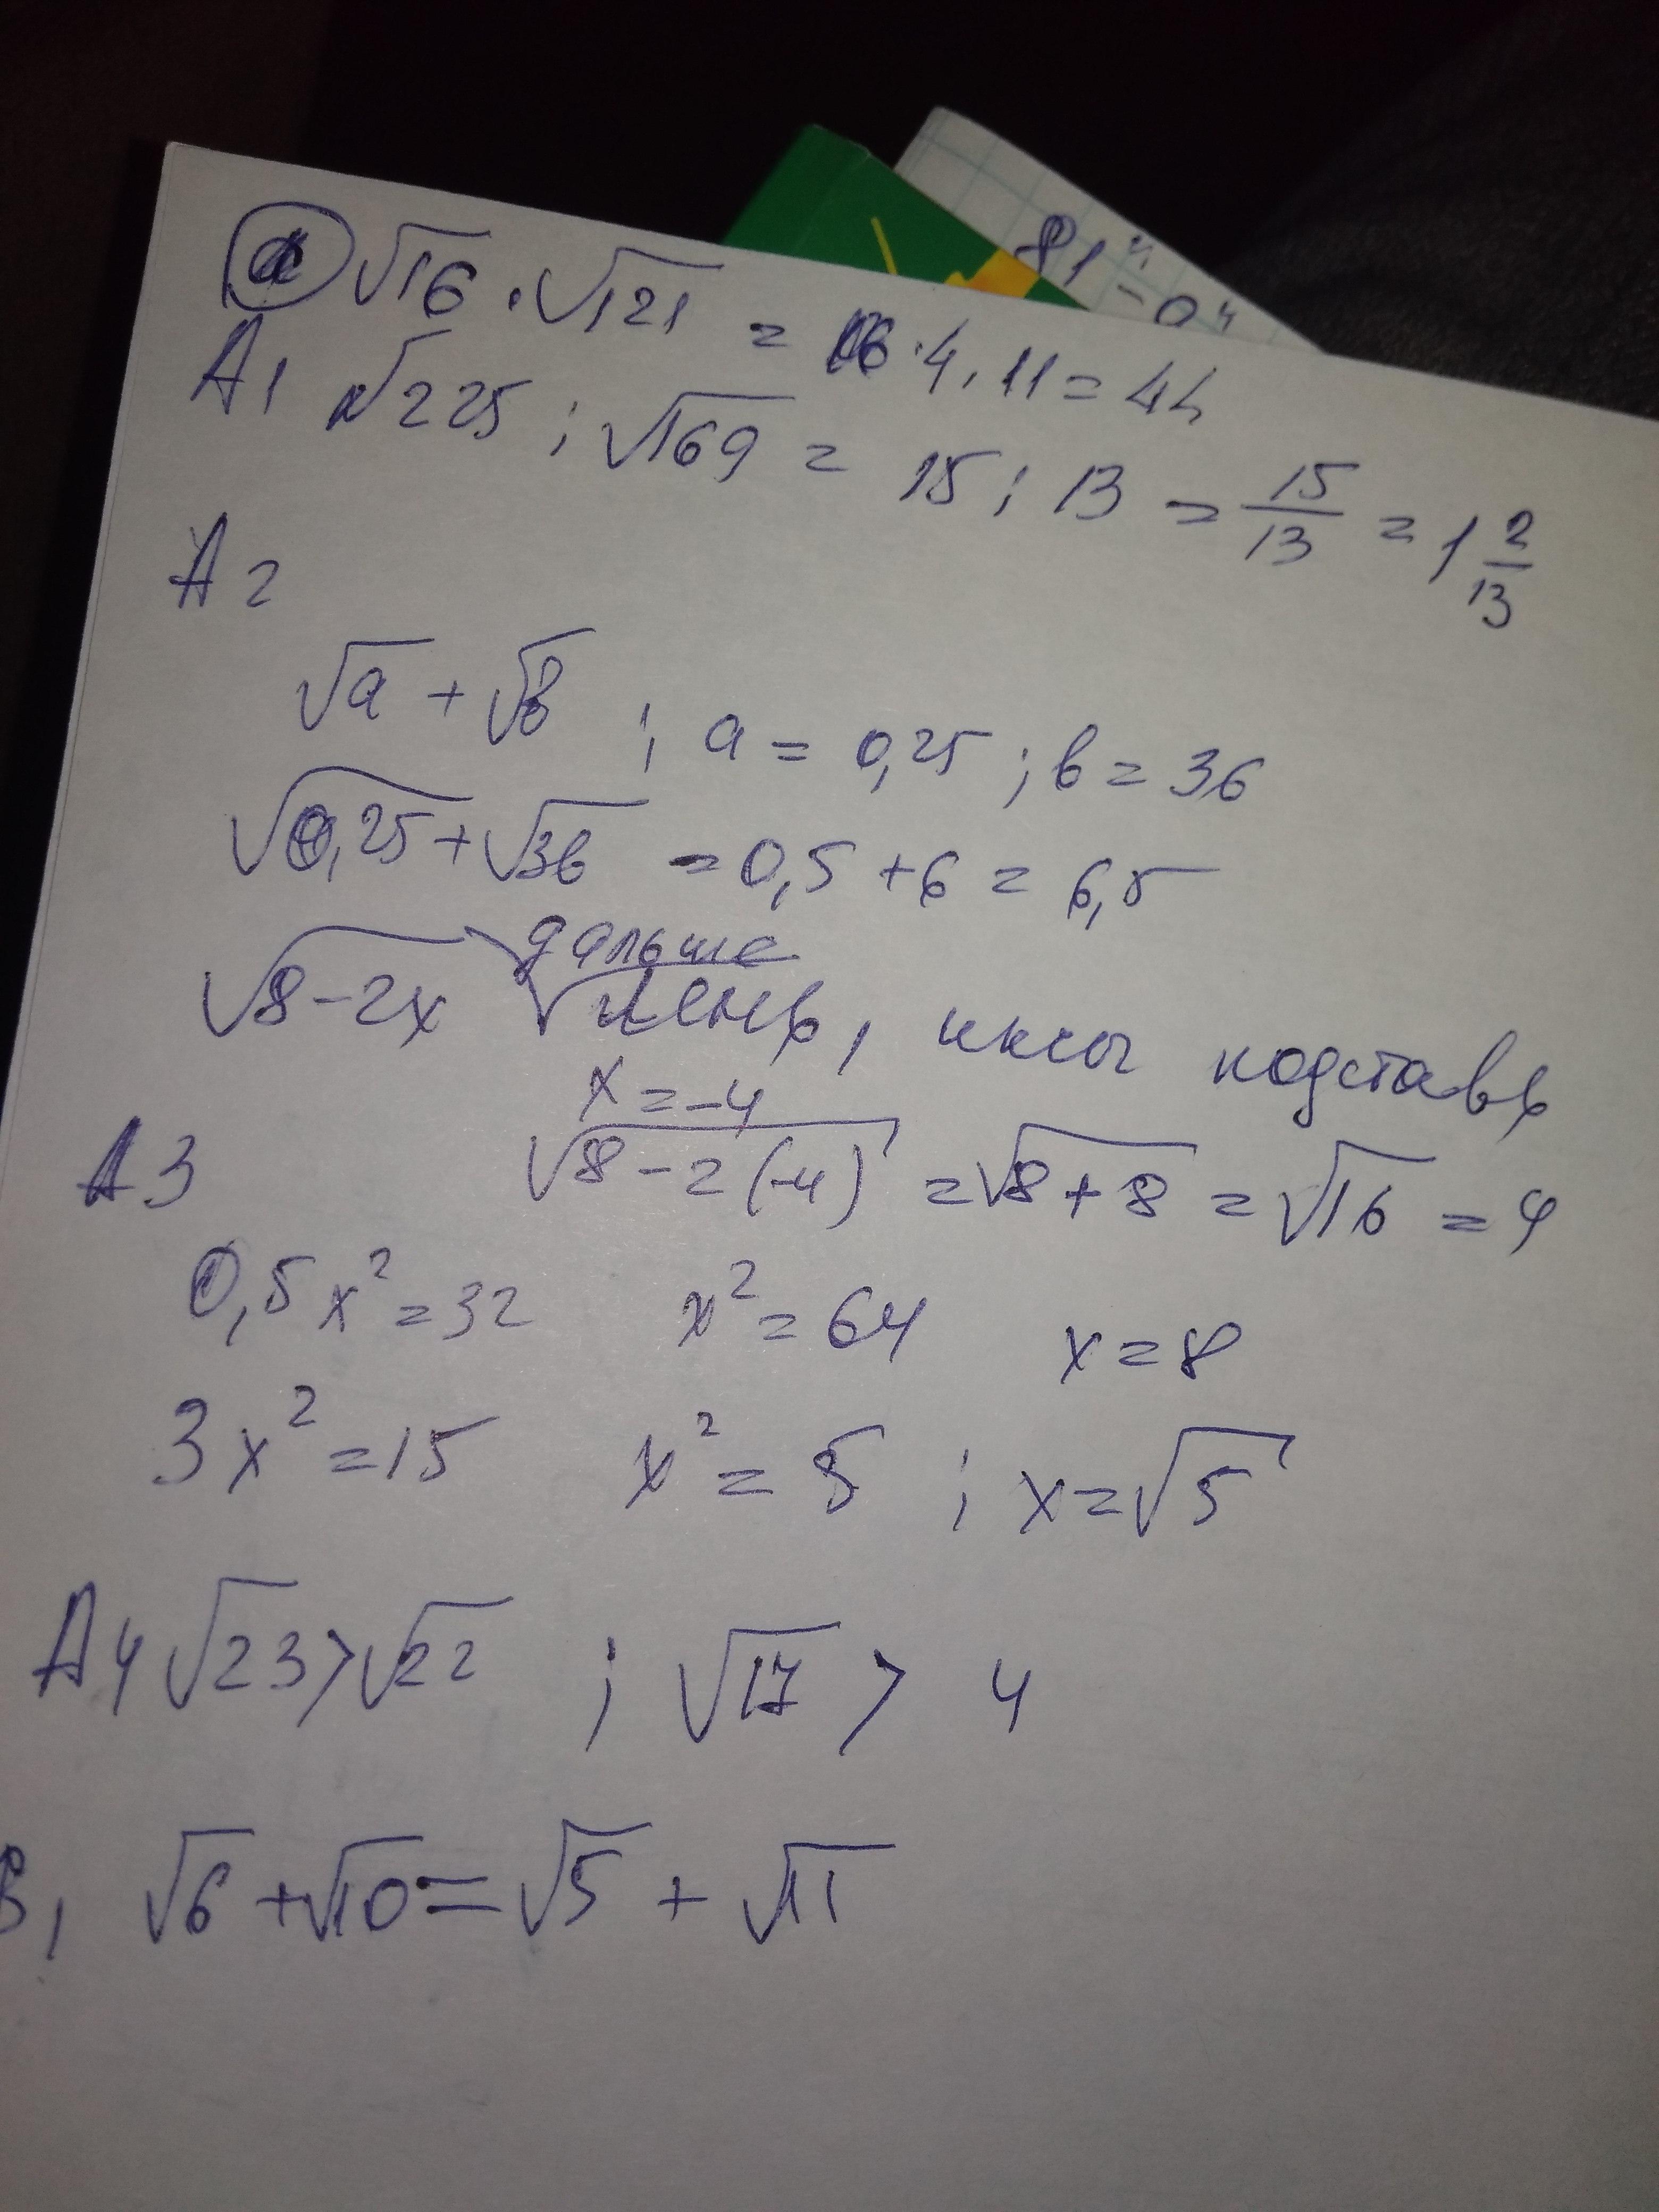 √16 · √121 = · 4 · 11 = 44
А1 √225 : √169 = 15 : 13 = 15/13 = 1 2/13
А2
√a + √в ; a = 0,25 ; в = 36
√0,25 + √36 = 0,5 + 6 = 6,5
дальше
√8-2x лень, иксы подставь
x = -4
А3 √8-2(-4) = √8+8 = √16 = 4
0,5x² = 32 x² = 64 x = 8
3x² = 15 x² = 5 ; x = √5
А4 √23 > √22 ; √17 > 4
В1 √6 + √10 = √5 + √11
81